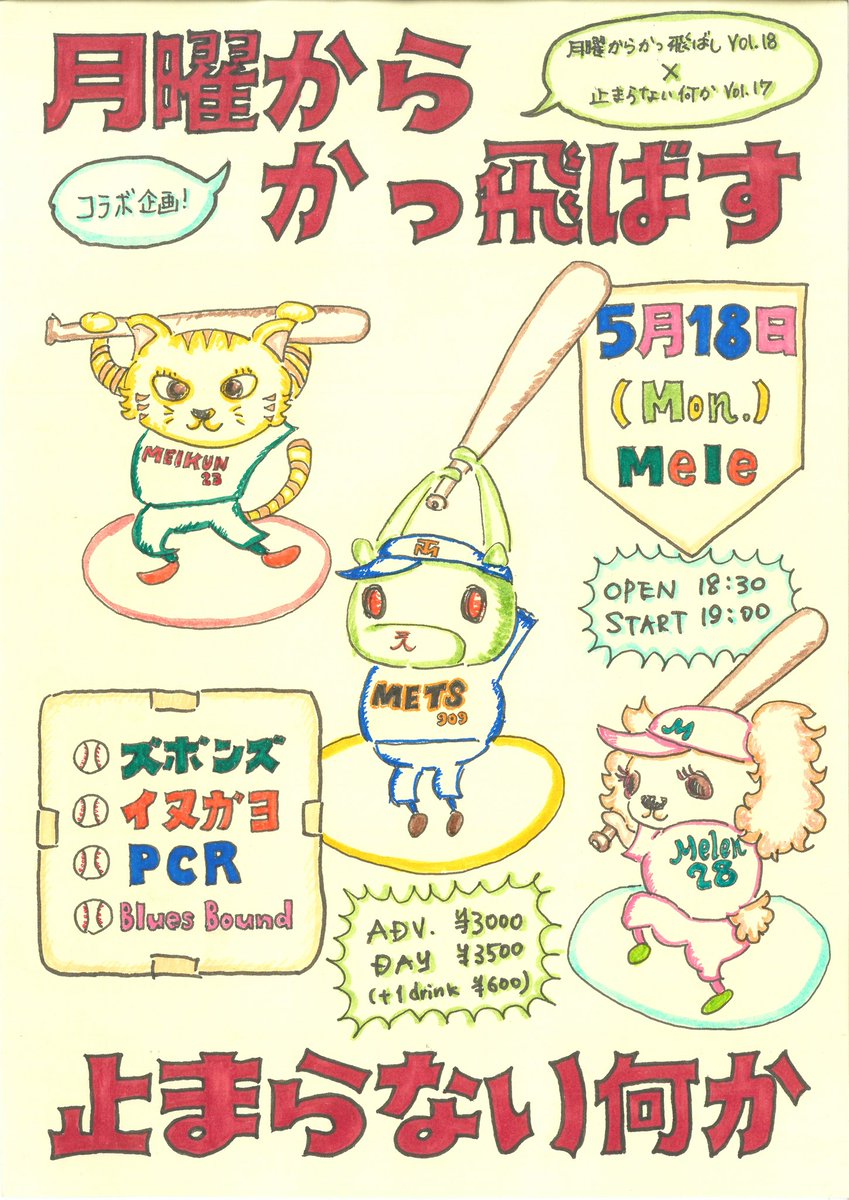 月曜から
かっ飛ばす
月曜からかっ飛ばし Vol.18
×
止まらない何か Vol.17
コラボ企画!
5月18日
(Mon.)
Mele
OPEN 18:30
START 19:00
MEIKUN
23
METS
909
M
Melen
28
ズボンズ
イヌガヨ
PCR
Blues Bound
ADV. ¥3000
DAY ¥3500
(+1drink ¥600)
止まらない何か